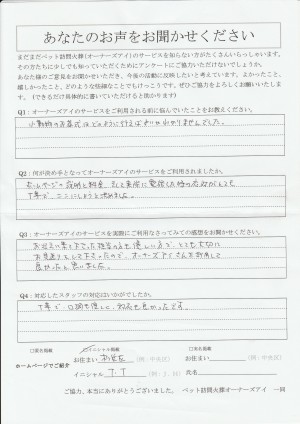 あなたのお声をお聞かせください
まだまだペット訪問火葬(オーナーズアイ)のサービスを知らない方がたくさんいらっしゃいます。
その方たちに少しでも知っていただくためにアンケートにご協力いただけないでしょうか。
あなた様のご意見をお聞かせいただき、今後の活動に反映したいと考えています。よかったこと、
嬉しかったこと、どのような些細なことでもけっこうです。ぜひご協力をよろしくお願いいたしま
す。(できるだけ具体的に書いていただけると助かります)
Q1：オーナーズアイのサービスをご利用される前に悩んでいたことをお教えください。
小動物のお葬式はどのように行えばよいかわかりませんでした。
Q2：何が決め手となってオーナーズアイのサービスをご利用されましたか。
ホームページの説明と料金、そして実際に電話した時の応対がとても
丁寧で、ここにしようと決めました。
Q3：オーナーズアイのサービスを実際にご利用なさってみての感想をお聞かせください。
お迎えに来て下さった担当の方も優しい方で、とても大切に
お見送りをして下さったので、オーナーズアイさんを利用して
良かったと思いました。
Q4：対応したスタッフの対応はいかがでしたか。
丁寧で、口調も優しく、対応も良かったです。
□イニシャル掲載
□実名掲載
ホームページでご紹介
お住まい
(例：中央区)
お住まい
(例：中央区)
イニシャル T.T
氏名
ご協力、本当にありがとうございました。 ペット訪問火葬オーナーズアイ 一同